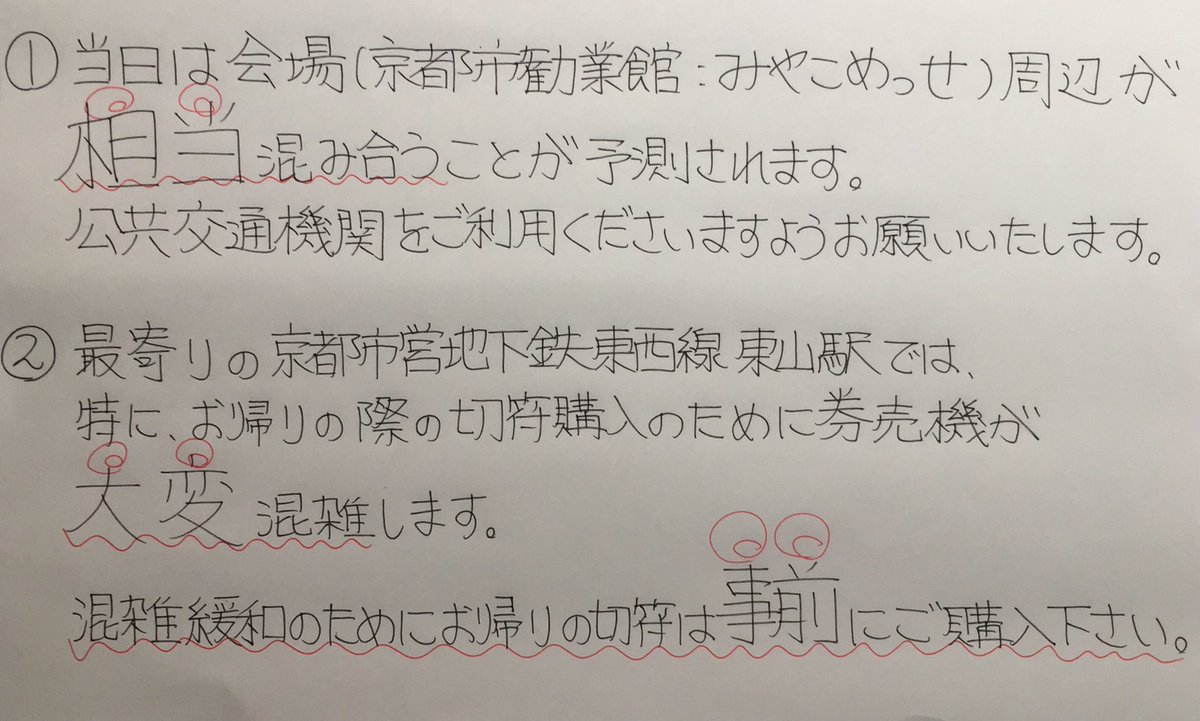 ① 当日は会場(京都市勧業館:みやこめっせ)周辺が
相当混み合うことが予測されます。
公共交通機関をご利用くださいますようお願いいたします。
② 最寄りの京都市営地下鉄東西線 東山駅では、
特に、お帰りの際の切符購入のために券売機が
大変混雑します。
混雑緩和のためにお帰りの切符は事前にご購入下さい。